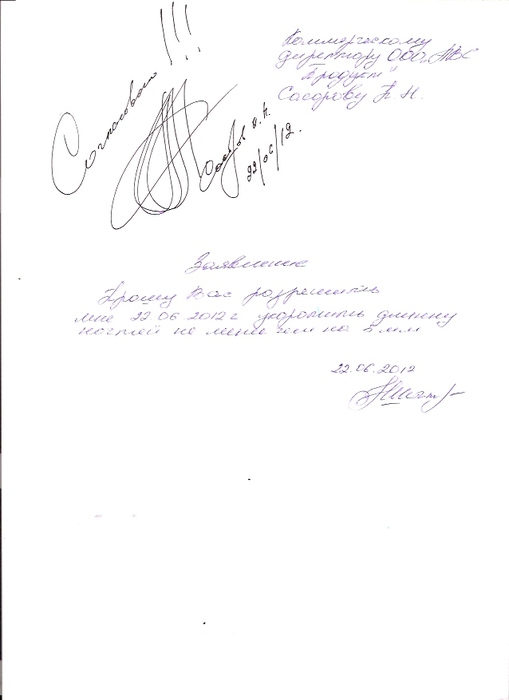 !!!
Согласовано
22/06/12.
Коммерческому
директору ООО „АВС
Продукт"
Сосорову П. Н.
Заявление
Прошу Вас разрешить
мне 22.06.2012 г укоротить длинну
ногтей не менее чем на 5 мм
22.06.2012